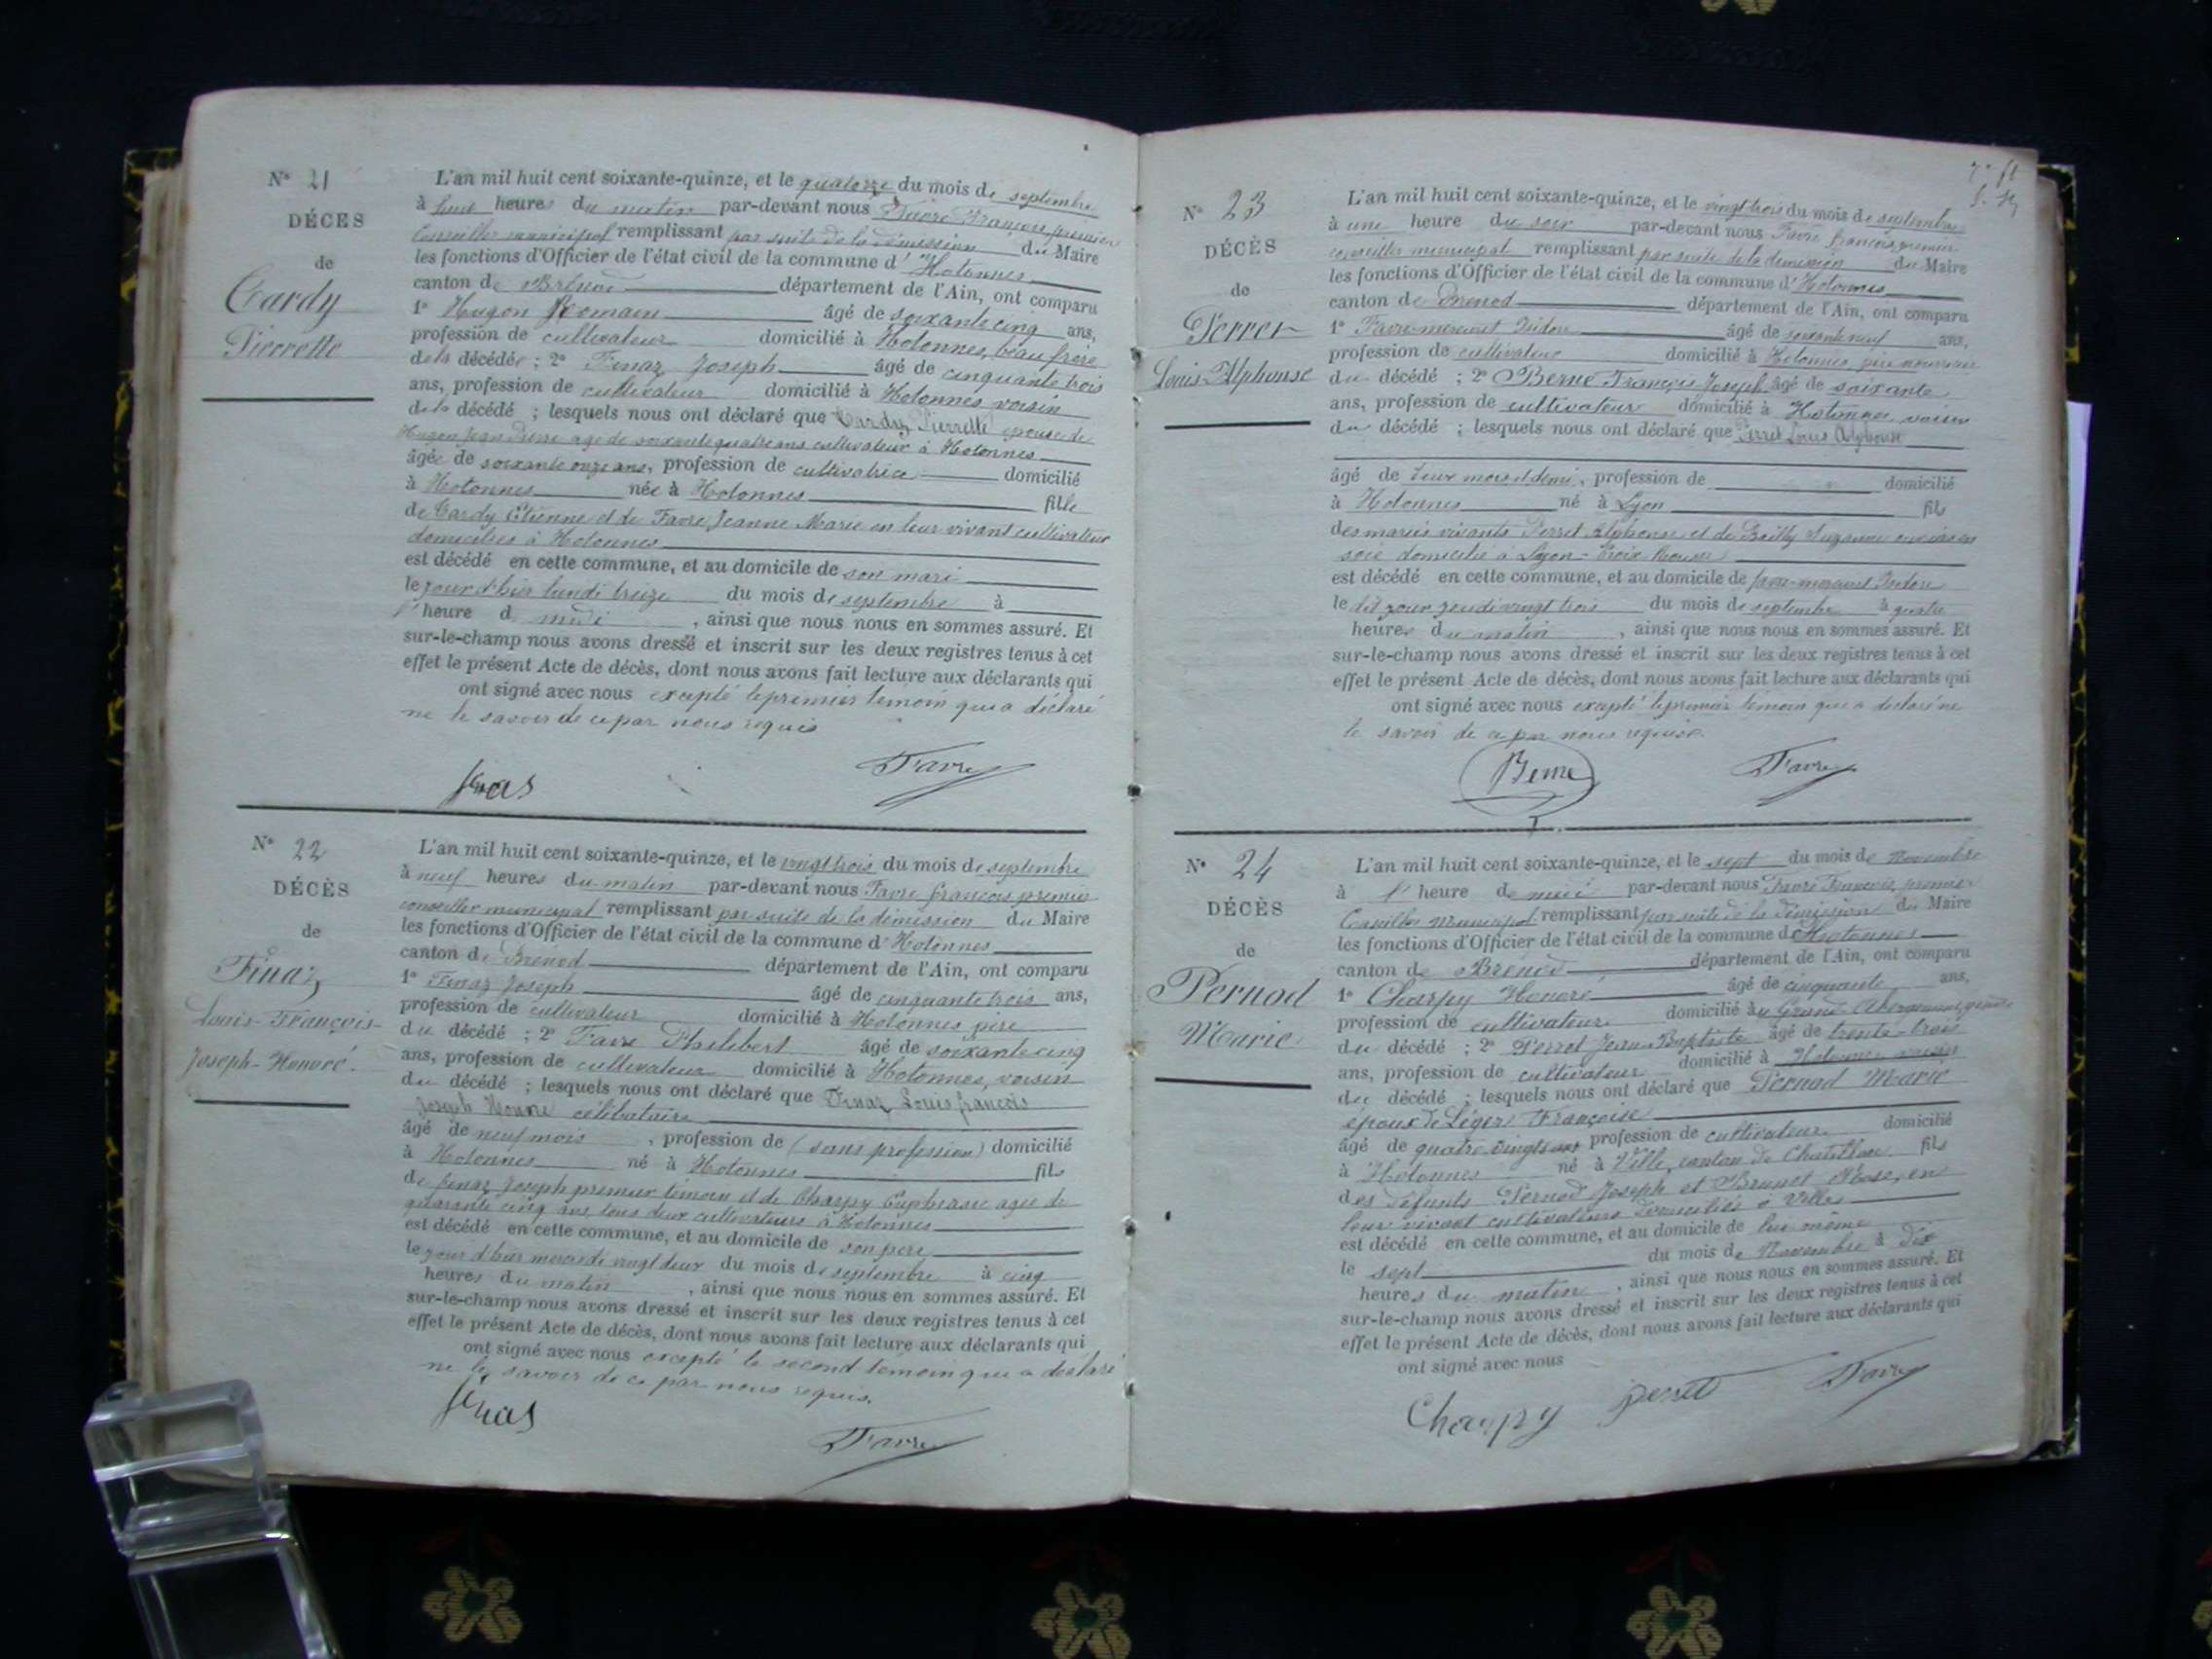 N° 21
DÉCES
de
Cardy
Pierrette
L'an mil huit cent soixante-quinze, et le quatorze du mois de septembre
à huit heures du matin par-devant nous Favre François premier
Conseiller municipal remplissant par suite de la démission du Maire
les fonctions d'Officier de l'état civil de la commune d'Hotonnes
canton de Brénod département de l'Ain, ont comparu
1° Hugon Romain âgé de soixante cinq ans,
profession de cultivateur domicilié à Hotonnes, beau frère
de la décédée ; 2° Finaz Joseph âgé de cinquante trois
ans, profession de cultivateur domicilié à Hotonnes voisin
de la décédé ; lesquels nous ont déclaré que Cardy Pierrette épouse de
Hugon Jean Pierre agé de soixante quatre ans cultivateur à Hotonnes
âgée de soixante onze ans, profession de cultivatrice domicilié
à Hotonnes née à Hotonnes fille
de Cardy Etienne et de Favre Jeanne Marie en leur vivant cultivateur
domiciliés à Hotonnes
est décédé en cette commune, et au domicile de son mari
le jour d'hier lundi treize du mois de septembre à
l'heure de midi , ainsi que nous nous en sommes assuré. Et
sur-le-champ nous avons dressé et inscrit sur les deux registres tenus à cet
effet le présent Acte de décès, dont nous avons fait lecture aux déclarants qui
ont signé avec nous excepté le premier témoin qui a déclaré
ne le savoir de ce par nous requis
Favre
N° 22
DÉCÈS
de
Finaz
Louis-François-
Joseph-Honoré.
L'an mil huit cent soixante-quinze, et le vingt trois du mois de septembre
à neuf heures du matin par-devant nous Favre françois premier
conseiller municipal remplissant par suite de la démission du Maire
les fonctions d'Officier de l'état civil de la commune d'Hotonnes
canton de Brenod département de l'Ain, ont comparu
1° Finaz Joseph âgé de cinquante trois ans,
profession de cultivateur domicilié à Hotonnes père
du décédé ; 2° Favre Philibert âgé de soixante cinq
ans, profession de cultivateur domicilié à Hotonnes, voisin
du décédé ; lesquels nous ont déclaré que Finaz Louis françois
Joseph Honoré célibataire
âgé de neuf mois , profession de (sans profession) domicilié
à Hotonnes né à Hotonnes fils
de finaz Joseph premier témoin et de Charpy Euphrasie agée de
quarante cinq ans, tous deux cultivateurs à Hotonnes
est décédé en cette commune, et au domicile de son père
le jour d'hier mercredi vingt deux du mois de septembre à cinq
heures du matin , ainsi que nous nous en sommes assuré. Et
sur-le-champ nous avons dressé et inscrit sur les deux registres tenus à cet
effet le présent Acte de décès, dont nous avons fait lecture aux déclarants qui
ont signé avec nous excepté le second témoin qui a déclaré
ne le savoir de ce par nous requis.
Favre
N° 23
DÉCÈS
de
Perret
Louis-Alphonse
L'an mil huit cent soixante-quinze, et le vingt trois du mois de septembre
à une heure du soir par-devant nous Favre françois, premier
conseiller municipal remplissant par suite de la démission du Maire
les fonctions d'Officier de l'état civil de la commune d'Hotonnes
canton de Brenod département de l'Ain, ont comparu
1° Favre-mercuret Isidore âgé de soixante neuf ans,
profession de cultivateur domicilié à Hotonnes, père nourricier
du décédé ; 2° Berne François Joseph âgé de soixante
ans, profession de cultivateur domicilié à Hotonnes voisin
du décédé ; lesquels nous ont déclaré que Perret Louis Alphonse
âgé de deux mois et demi, profession de domicilié
à Hotonnes né à Lyon fils
des mariés vivants Perret Alphonse et de Suzanne
soie domicilié à Lyon-Croix Rousse
est décédé en cette commune, et au domicile de favre-mercuret Isidore
le dit jour jeudi vingt trois du mois de septembre à quatre
heures du matin , ainsi que nous nous en sommes assuré. Et
sur-le-champ nous avons dressé et inscrit sur les deux registres tenus à cet
effet le présent Acte de décès, dont nous avons fait lecture aux déclarants qui
ont signé avec nous excepté le premier témoin qui a déclaré ne
le savoir de ce par nous requis.
Berne Favre
N° 24
DÉCÈS
de
Pernod
Marie
L'an mil huit cent soixante-quinze, et le sept du mois de Novembre
à l'heure de midi par-devant nous Favre François, premier
Conseiller Municipal remplissant par suite de la démission du Maire
les fonctions d'Officier de l'état civil de la commune d'Hotonnes
canton de Brénod département de l'Ain, ont comparu
1° Charpy Honoré âgé de cinquante ans,
profession de cultivateur domicilié au Grand Abergement, gendre
du décédé ; 2° Perret Jean-Baptiste âgé de trente-trois
ans, profession de cultivateur domicilié à Hotonnes voisin
du décédé ; lesquels nous ont déclaré que Pernod Marie
époux de Léger Françoise
âgé de quatre vingts ans profession de cultivateur domicilié
à Hotonnes né à Ville, canton de Chatillon fils
des défunts Pernod Joseph et Brunet Rose, en
leur vivant cultivateurs domiciliés à Villes
est décédé en cette commune, et au domicile de lui même
le sept du mois de Novembre à dix
heures du matin , ainsi que nous nous en sommes assuré. Et
sur-le-champ nous avons dressé et inscrit sur les deux registres tenus à cet
effet le présent Acte de décès, dont nous avons fait lecture aux déclarants qui
ont signé avec nous
Charpy perret Favre